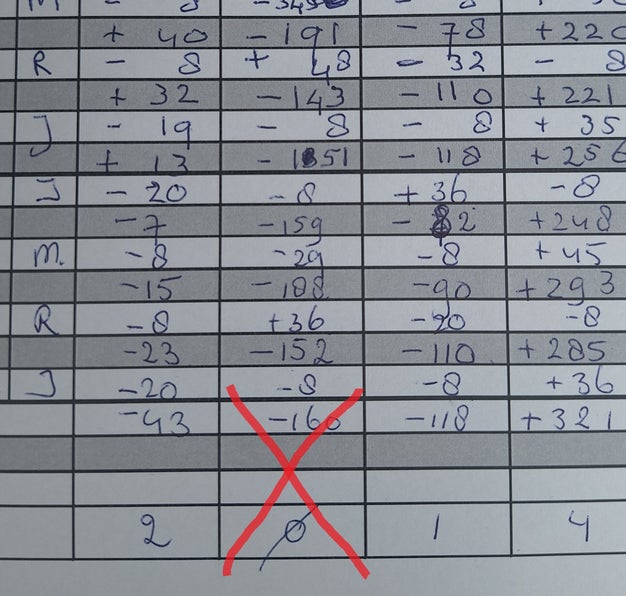 + 40 - 191 - 78 + 220
R - 8 + 48 - 32 - 8
+ 32 - 143 - 110 + 221
J - 19 - 8 - 8 + 35
+ 13 - 151 - 118 + 256
J - 20 - 8 + 36 - 8
- 7 - 159 - 82 + 248
M. - 8 - 29 - 8 + 45
- 15 - 188 - 90 + 293
R - 8 + 36 - 20 - 8
- 23 - 152 - 110 + 285
J - 20 - 8 - 8 + 36
- 43 - 160 - 118 + 321
2 0 1 4